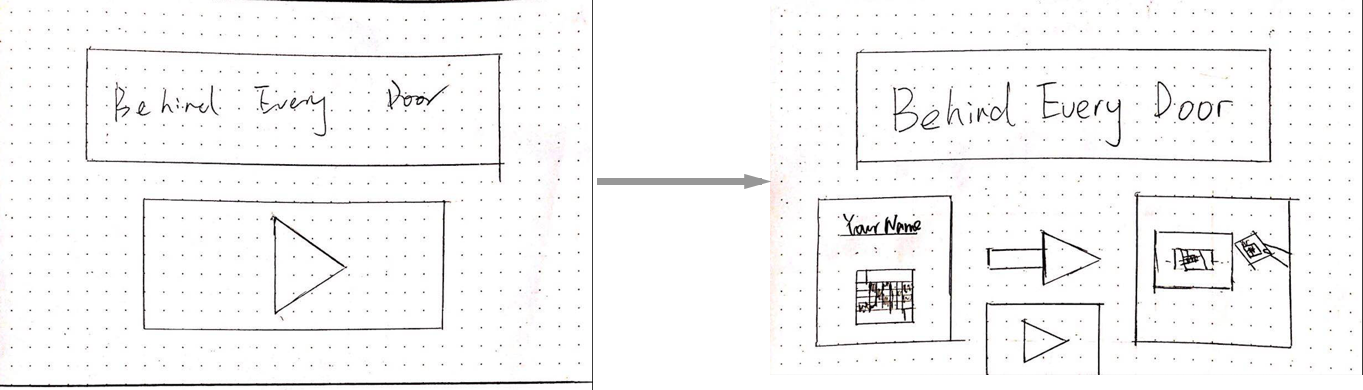 Behind Every Door
Behind Every Door
Your Name